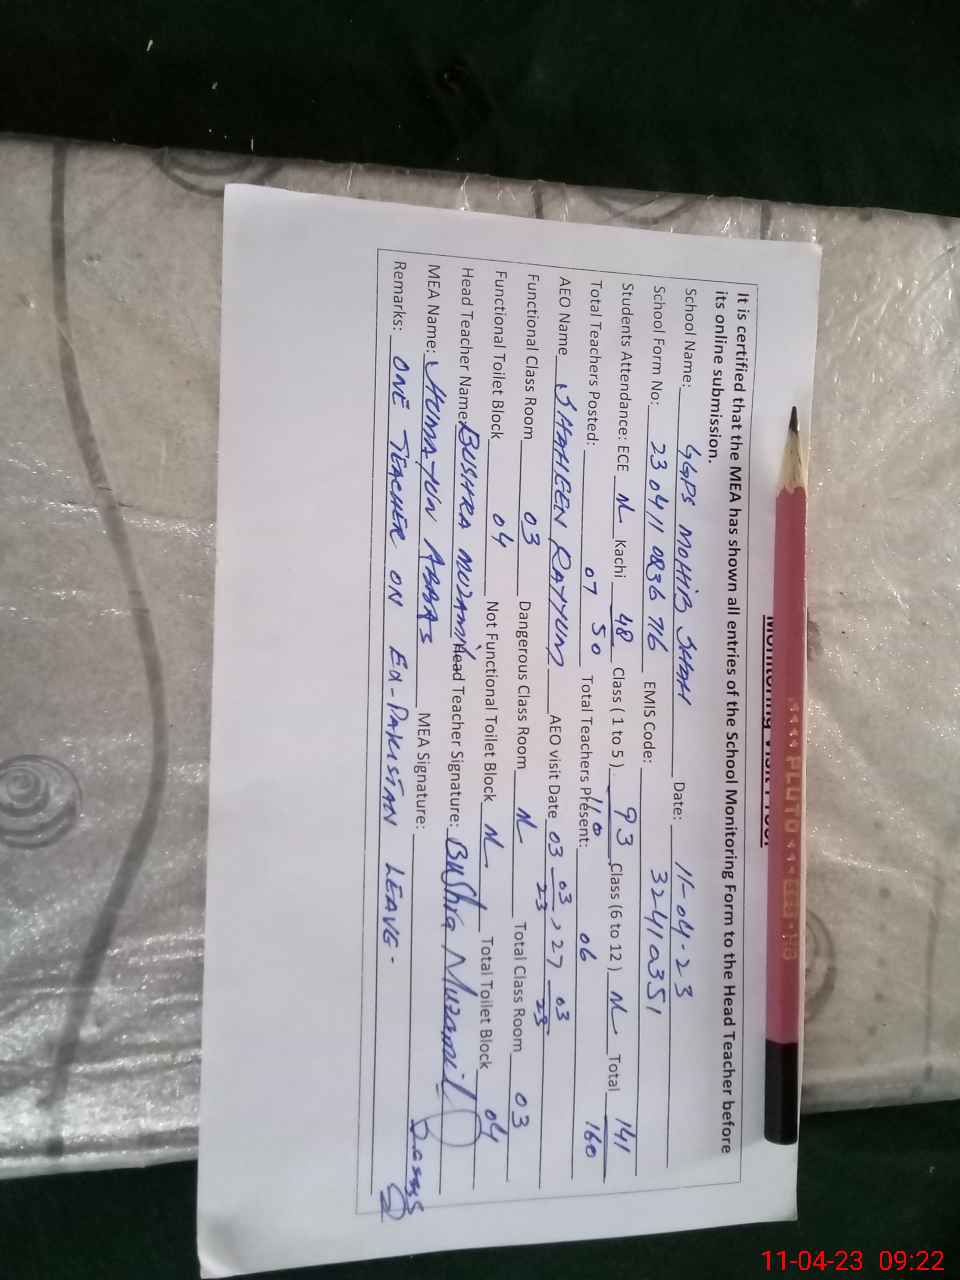 Monitoring Visit Proof
It is certified that the MEA has shown all entries of the School Monitoring Form to the Head Teacher before
its online submission.
School Name: GGPS MOHIB SHAH Date: 11-04-23
School Form No: 23 0411 0836 716 EMIS Code: 32410351
Students Attendance: ECE N Kachi 48 Class ( 1 to 5 ) 93 Class (6 to 12 ) N Total 141
50 110 160
Total Teachers Posted: 07 Total Teachers Present: 06
AEO Name SHAHEEN AEO visit Date 03 03 23, 27 03 23
Functional Class Room 03 Dangerous Class Room N Total Class Room 03
Functional Toilet Block 04 Not Functional Toilet Block N Total Toilet Block 04
Head Teacher Name: BUSHRA MUZAMIL Head Teacher Signature: Bushra Muzamil
MEA Name: HUMAYUN ABBAS MEA Signature:
Remarks: ONE TEACHER ON EX-PAKISTAN LEAVE.
PLUTO
11-04-23 09:22